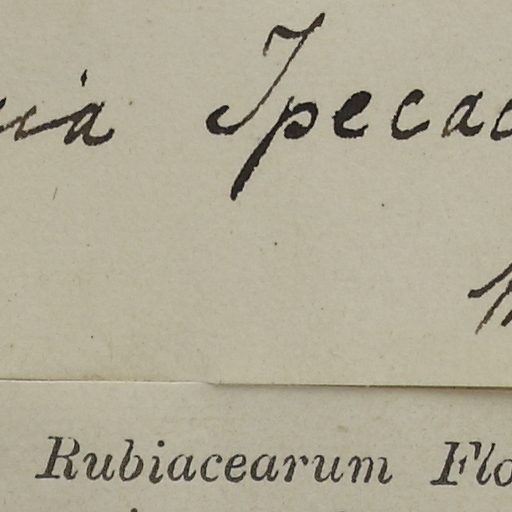 Ipecac
Rubiacearum Flo